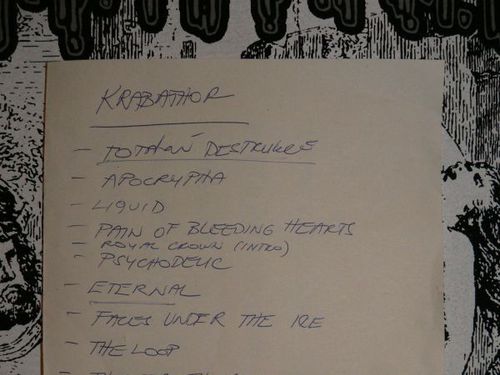 KRABATHOR
- TOTÁLNÍ DESTRUKCE
- APOCRYPHA
- LIQUID
- PAIN OF BLEEDING HEARTS
- ROYAL CROWN (INTRO)
- PSYCHODELIC
- ETERNAL
- FACES UNDER THE ICE
- THE LOOP